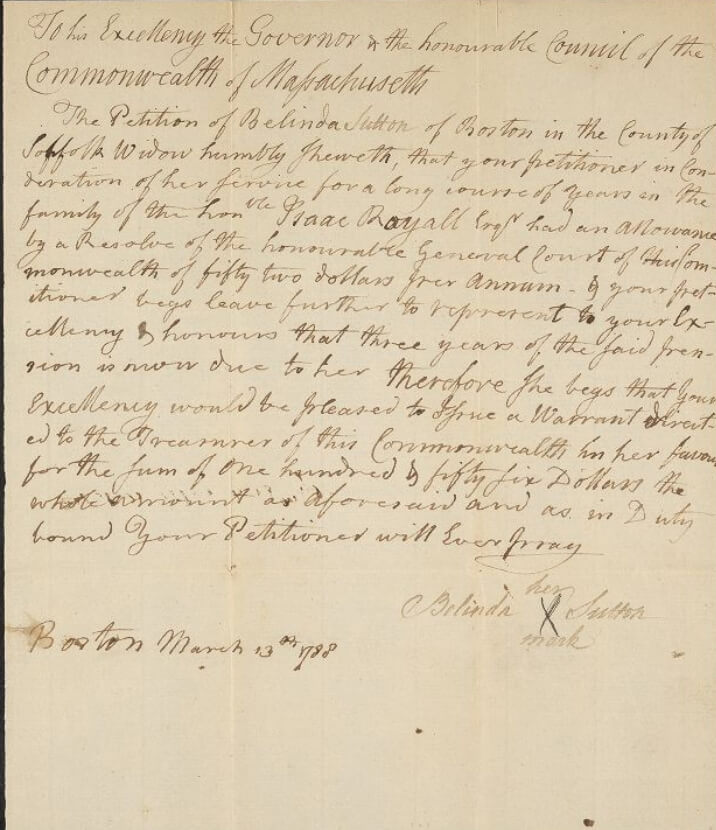 To his Excellency the Governor & the honourable Council of the
Commonwealth of Massachusetts
The Petition of Belinda Sutton of Boston in the County of
Suffolk Widow humbly sheweth, that your petitioner in Con-
deration of her service for a long course of years in the
family of the honble Isaac Royall Esqr had an Allowance
by a Resolve of the honourable General Court of this Com-
monwealth of fifty two dollars per Annum - & your pet-
itioner begs leave further to represent to your Ex-
cellency & honours that three years of the said pen-
sion is now due to her therefore she begs that your
Excellency would be pleased to Issue a Warrant direct-
ed to the Treasurer of this Commonwealth in her favour
for the sum of One hundred & fifty six Dollars the
whole amount as aforesaid and as in Duty
bound Your Petitioner will Ever pray
her
Belinda X Sutton
mark
Boston March 13th 1788